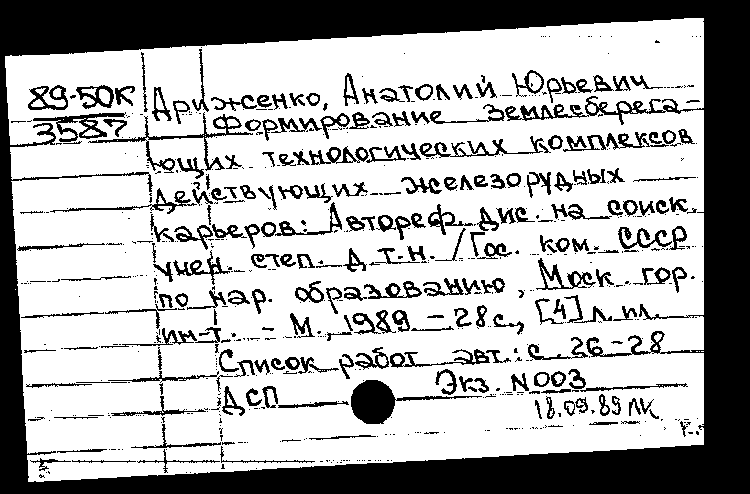 89-50К
3587
Дриженко, Анатолий Юрьевич
Формирование землесберега-
ющих технологических комплексов
действующих железорудных
карьеров: Автореф. дис. на соиск.
учен. степ. д.т.н. /Гос. ком. СССР
по нар. образованию, Моск. гор.
ин-т. - М., 1989. - 28с., [4] л. ил.
Список работ авт.: с. 26-28
ДСП Экз. N003
18.09.89 ЛК